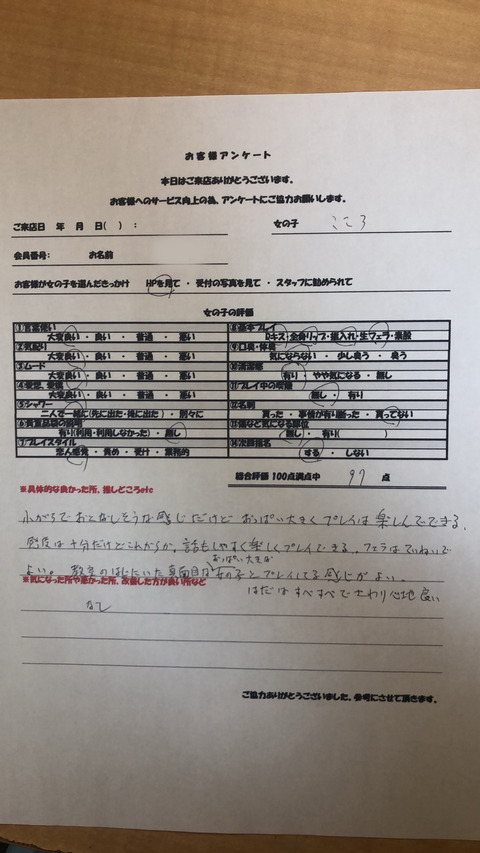 お客様アンケート
本日はご来店ありがとうございます。
お客様へのサービス向上の為、アンケートにご協力お願いします。
ご来店日 年 月 日( ) : 女の子 こころ
会員番号: お名前
お客様が女の子を選んだきっかけ HPを見て ・ 受付の写真を見て ・ スタッフに勧められて
女の子の評価
①言葉使い ⑧基本プレイ
大変良い ・ 良い ・ 普通 ・ 悪い Dキス・全身リップ・指入れ・生フェラ・素股
②気配り ⑨口臭・体臭
大変良い ・ 良い ・ 普通 ・ 悪い 気にならない ・ 少し臭う ・ 臭う
③ムード ⑩清潔感
大変良い ・ 良い ・ 普通 ・ 悪い 有り ・ やや気になる ・ 無し
④愛想、愛嬌 ⑪プレイ中の喫煙
大変良い ・ 良い ・ 普通 ・ 悪い 無し ・ 有り
⑤シャワー ⑫名刺
二人で一緒に(先に出た・後に出た) ・ 別々に 貰った ・ 事情が有り断った ・ 貰ってない
⑥貴重品袋の説明 ⑬傷など気になる部位
有り(利用・利用しなかった) ・ 無し 無し ・ 有り( )
⑦プレイスタイル ⑭次回指名
恋人感覚 ・ 責め ・ 受け ・ 業務的 する ・ しない
総合評価 100点満点中 97 点
※具体的な良かった所、推しどころetc
小がらでおとなしそうな感じだけど おっぱい大きくプレイは楽しんでできる。
感度は十分だけどこれからか。話もしやすく楽しくプレイできる。フェラはていねいで
おっぱい大きな
よい。教室のはじにいた真面目な女の子とプレイしてる感じがよい。
はだはすべすべでさわり心地良い
※気になった所や悪かった所、改善した方が良い所など
なし
ご協力ありがとうございました。参考にさせて頂きます。